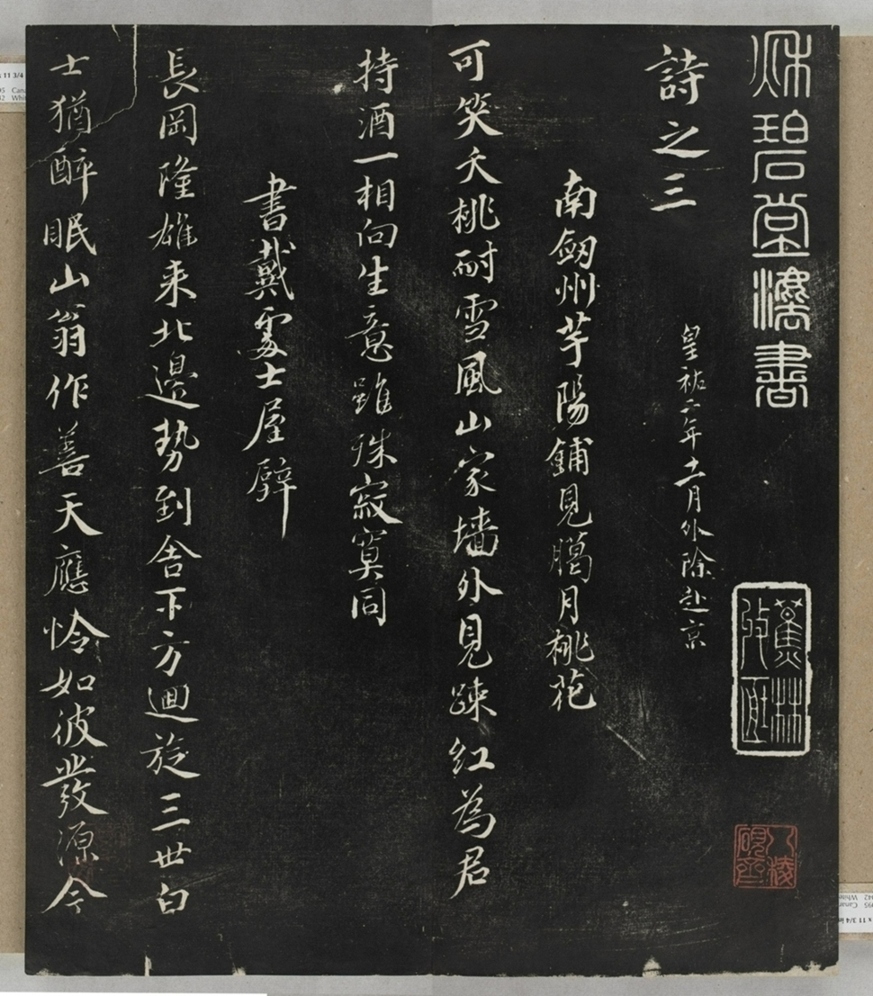 秋碧堂灋書
蕉林
詩之三
皇祐二年十一月外除赴京
南劔州芋陽鋪見臈月桃花
可笑夭桃耐雪風山家墻外見踈紅為君
持酒一相向生意雖殊寂寞同
書戴處士屋壁
長岡隆雄来北邊勢到舍下方迴旋三世白
士猶醉眠山翁作善天應怜如彼發源今